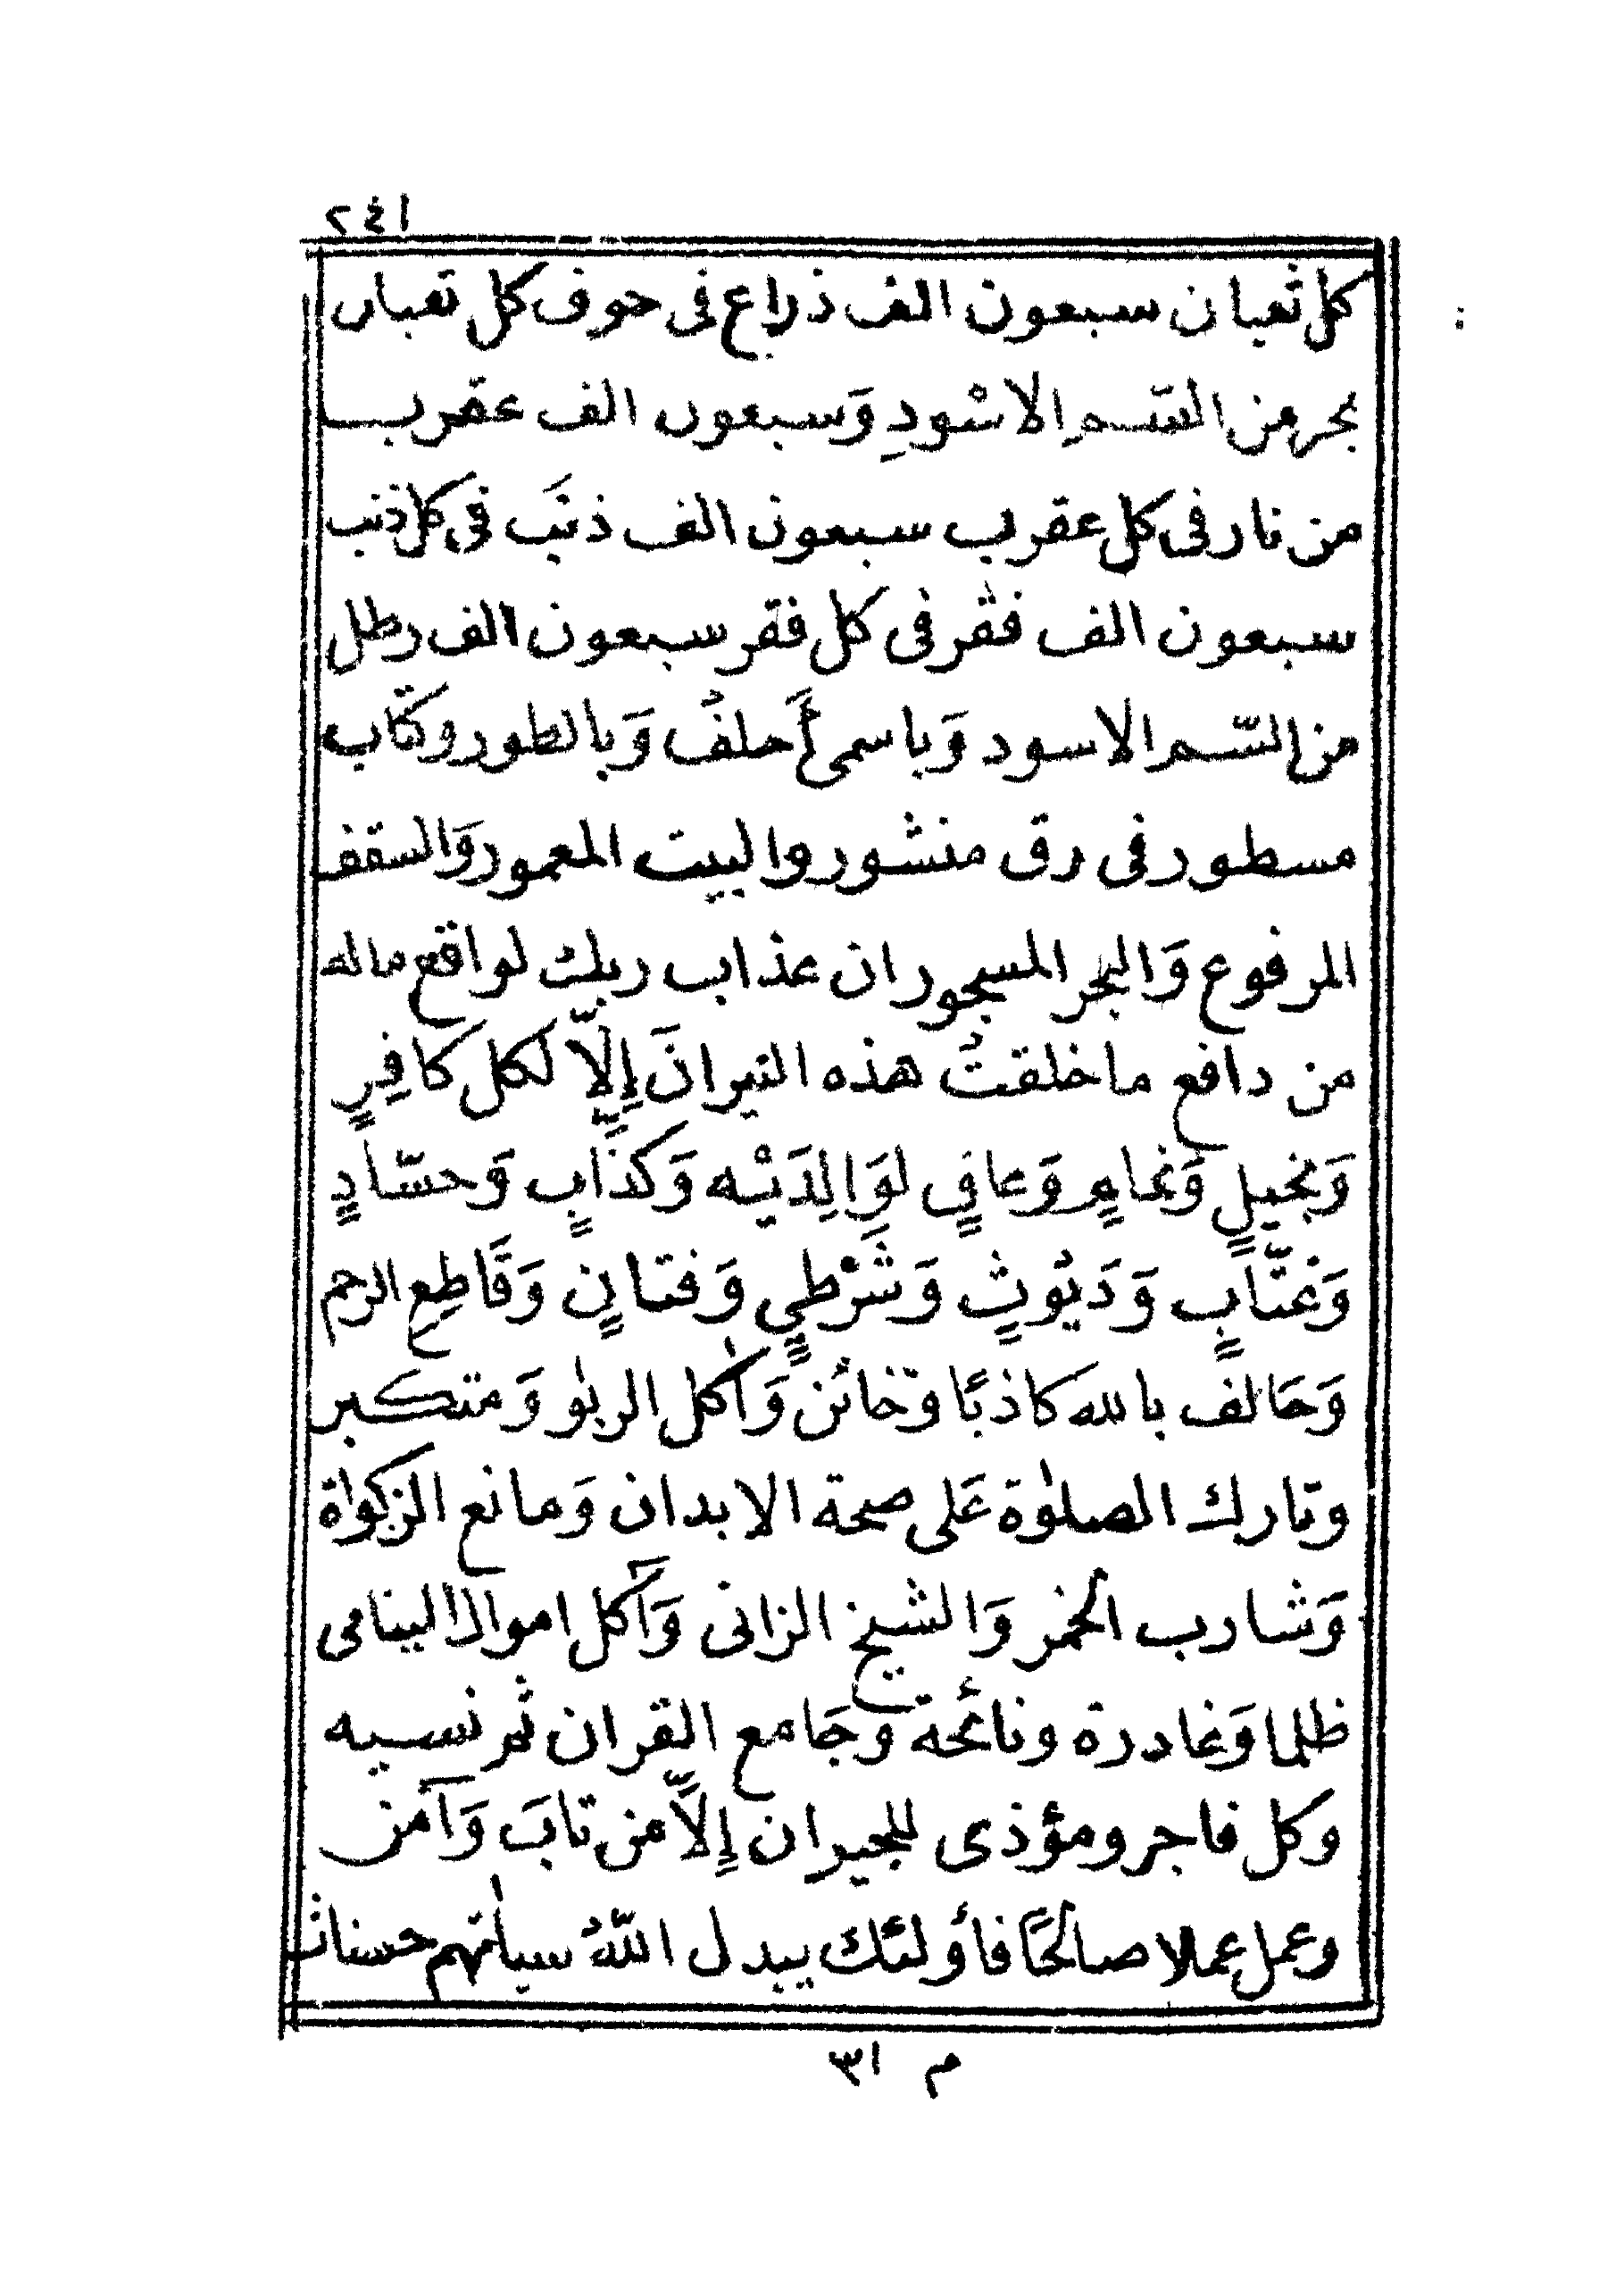 ٢٤١
كل ثعبان سبعون الف ذراع فى جوف كل ثعبان
بحر من السّم الاسْودِ وَسبعون الف عقرب
من نار فى كل عقرب سبعون الف ذنَب فى كل ذنب
سبعون الف فقر فى كل فقر سبعون الف رطل
من السّم الاسود وَباسمى أَحلفُ وَبالطور وكتاب
مسطور فى رق منشور والبيت المعمور وَالسقف
المرفوع وَالبحر المسجور ان عذاب ربك لواقع ماله
من دافع ما خلقتُ هذه النيرانَ إِلاّ لكل كافِرٍ
وَبخيلٍ وَنمامٍ وَعاقٍ لوَالِدَيْه وَكذّابٍ وَحسّادٍ
وَغتّابٍ وَدَيّوثٍ وَشَرْطيٍ وَفتانٍ وَقَاطِعِ الرحم
وَحَالف باللهَ كاذبًا وَخائن وَأٰكل الربٰو وَمتكبر
وتارك الصلوٰة عَلى صحة الابدان وَمانع الزكوٰة
وَشارب الخمر وَالشيخ الزانى وَآكل اموال اليتامى
ظلما وَغادرة ونائحة وَجَامع القران ثم نسيه
وكل فاجر ومؤذى للجيران إِلاّ من تابَ وَآمن
وعمل عملا صالحًا فأولئك يبدل اللّهُ سيأتهم حسنات
م ٣١